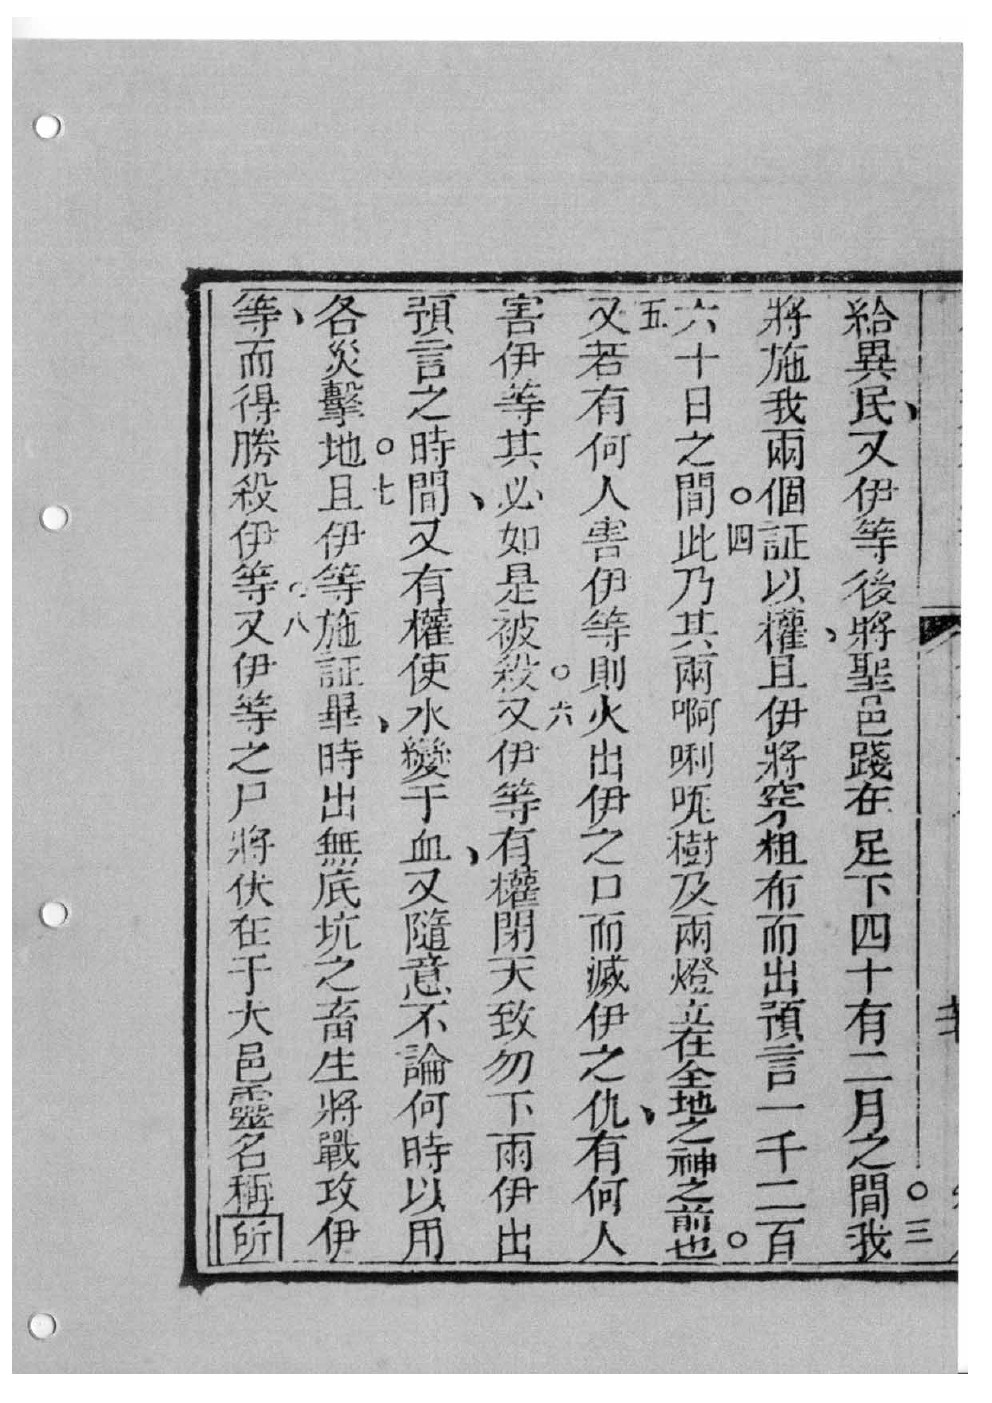 給異民、又伊等後將聖邑踐在足下四十有二月之間○三我
將施我兩個証以權、且伊將穿粗布而出預言一千二百
六十日之間○四此乃其兩啊唎𠰃樹及兩燈立在全地之神之前也○
五又若有何人害伊等則火出伊之口而滅伊之仇、有何人
害伊等其必如是被殺○六又伊等有權閉天致勿下雨伊出
預言之時間、又有權使水變于血、又隨意不論何時以用
各災擊地○七且伊等施証畢、時出無底坑之畜生將戰攻伊
等、而得勝殺伊等○八又伊等之尸將伏在于大邑靈名稱所